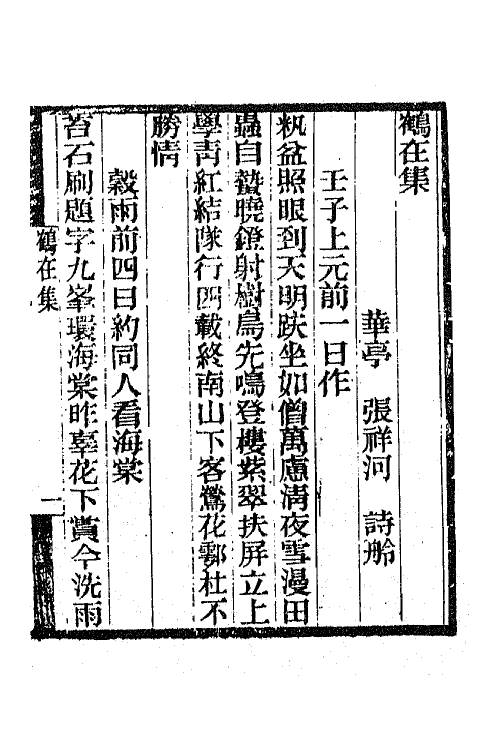 鶴在集
華亭 張祥河 詩舲
壬子上元前一日作
籸盆照眼到天明趺坐如僧萬慮清夜雪漫田
蟲自蟄曉鐙射樹鳥先鳴登樓紫翠扶屏立上
學青紅結隊行四載終南山下客鶯花鄠杜不
勝情
穀雨前四日約同人看海棠
苔石刷題字九峯環海棠昨辜花下賞今洗雨
鶴在集
一